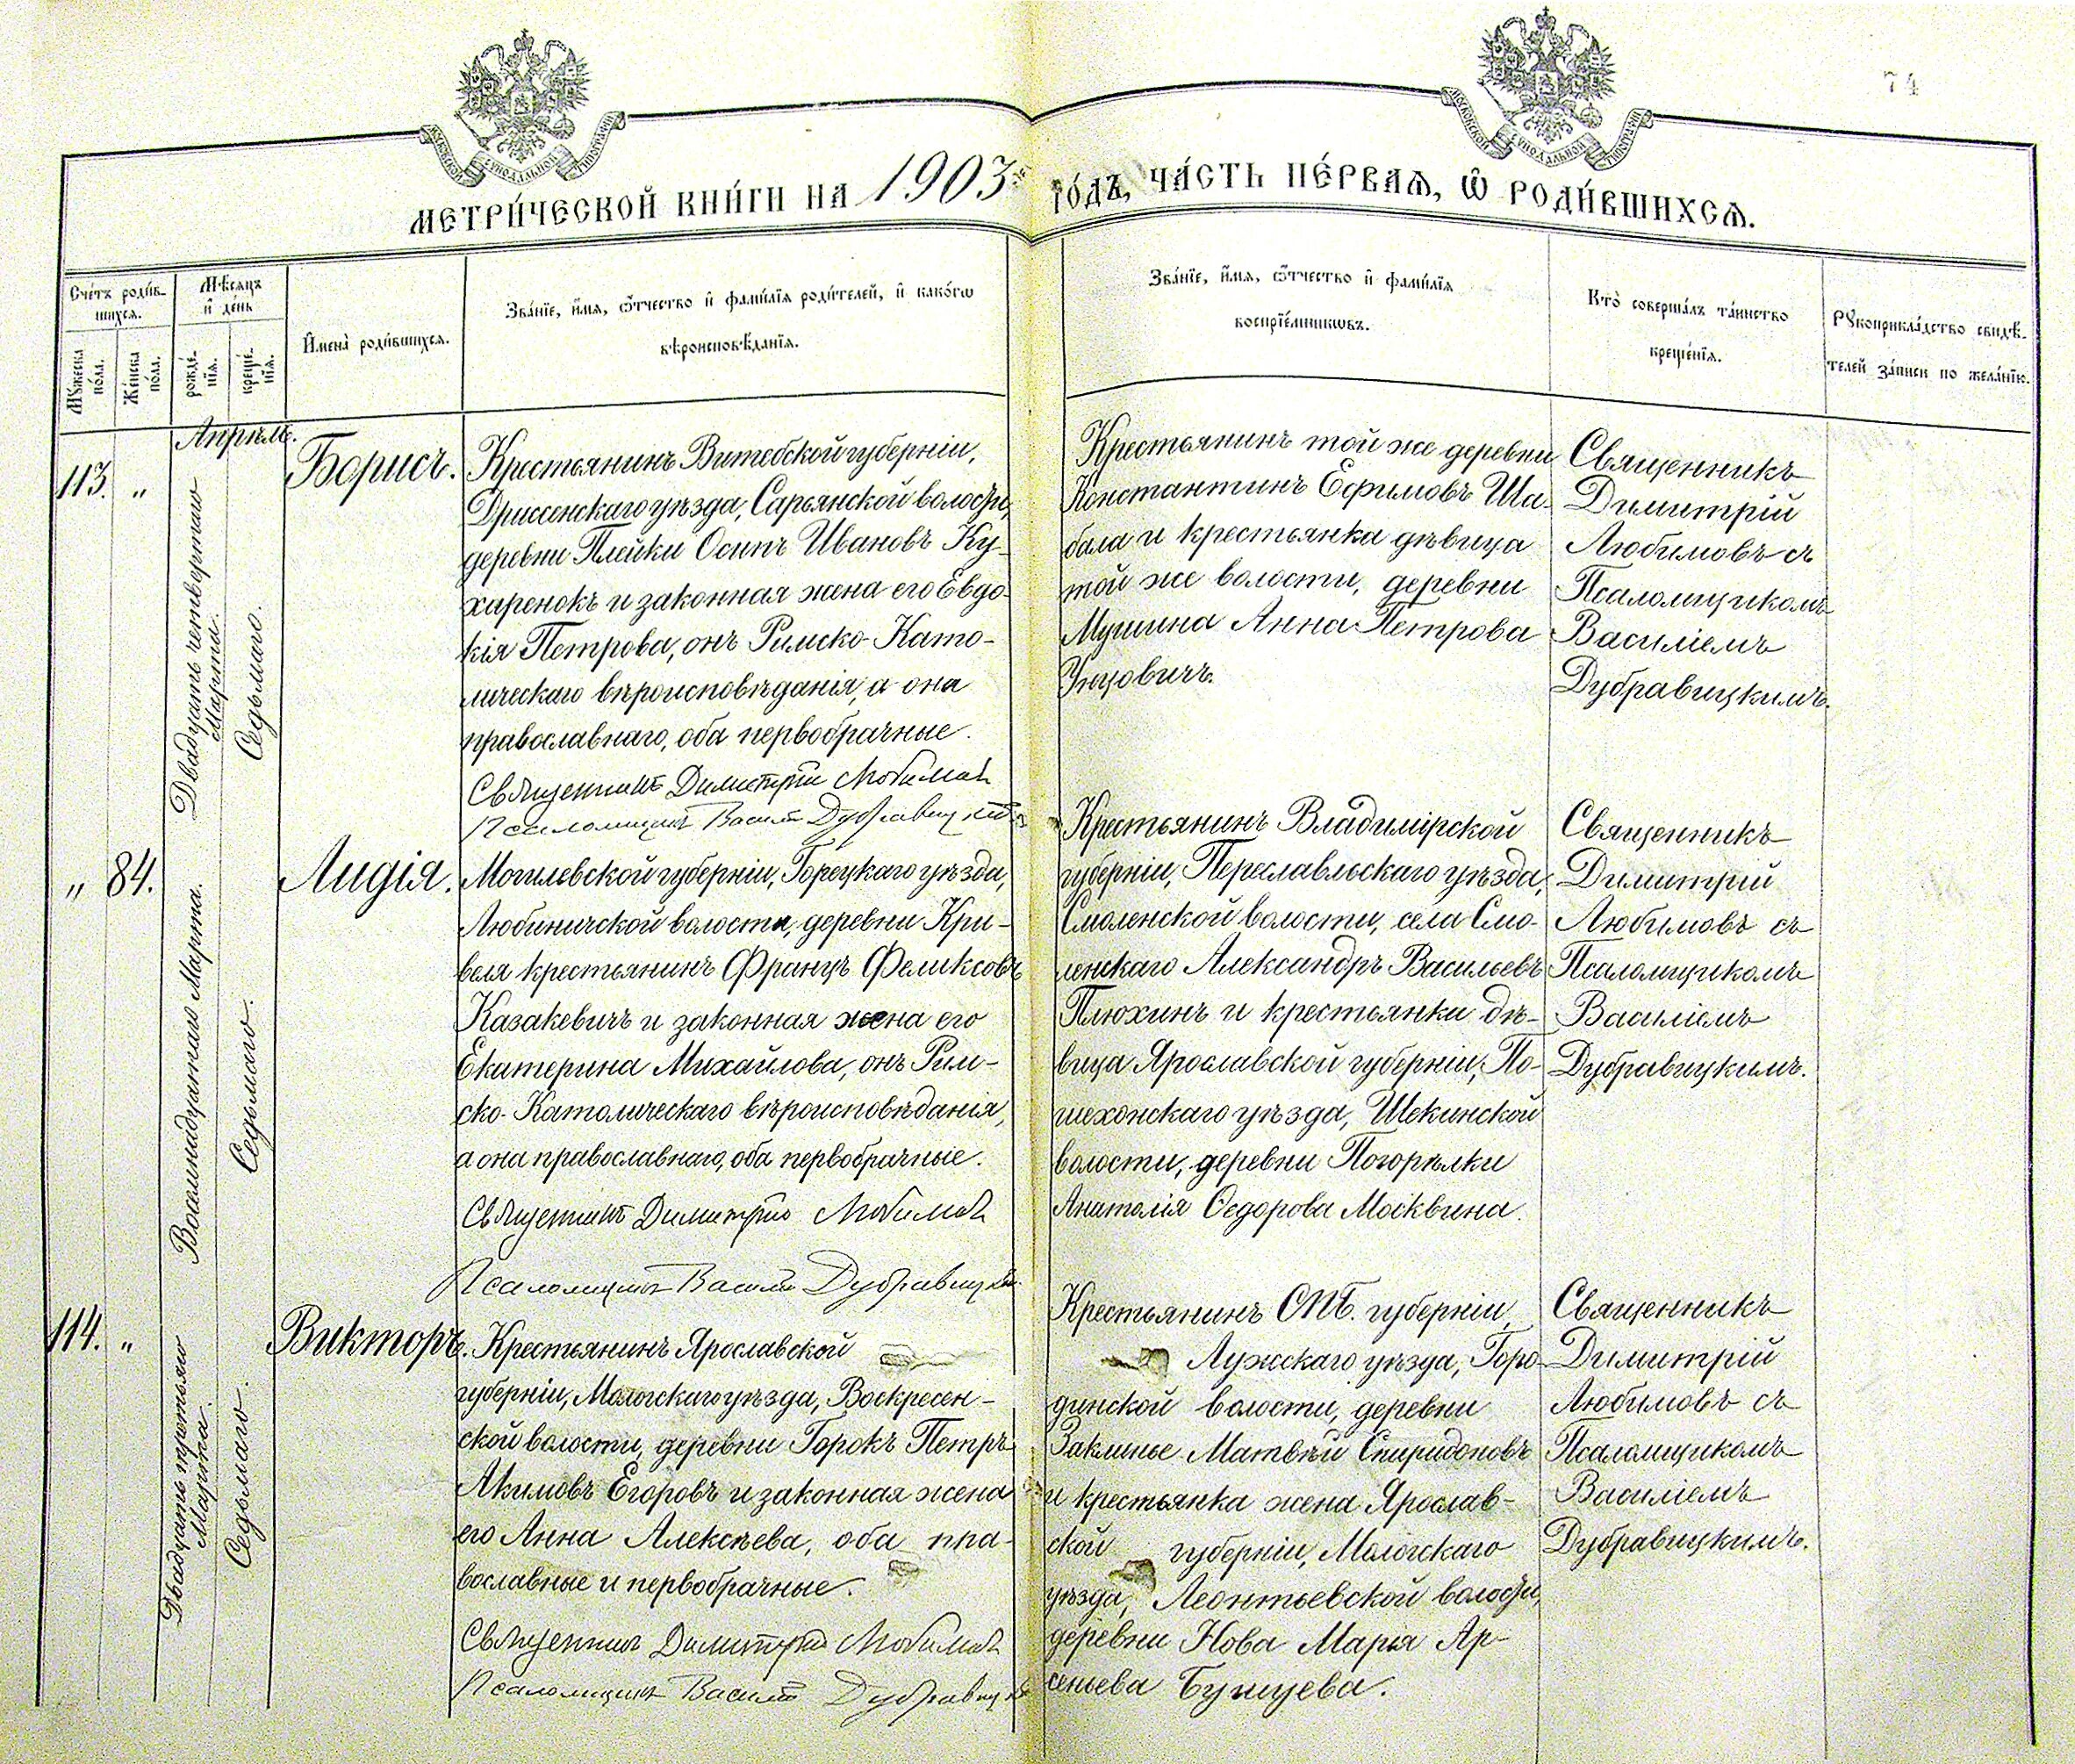 74
МОСКОВСКОЙ СѴНОДАЛЬНОЙ ТИПОГРАФІИ
МОСКОВСКОЙ СѴНОДАЛЬНОЙ ТИПОГРАФІИ
МЕТРИ́ЧЕСКОЙ КНИ́ГИ НА 1903й ГО́ДЪ, ЧА́СТЬ ПЕ́РВАѦ, Ѡ РОДИ́ВШИХСѦ.
Сче́тъ роди́в-
шихсѧ.
Мꙋ́жеска по́ла.
Же́нска по́ла.
Мѣ́сѧцъ
и҆ де́нь
рожде́-
нїѧ.
креще́-
нїѧ.
И҆мена̀ роди́вшихсѧ.
Зва́нїе, и҆́мѧ, ѻ҆́тчество и҆ фами́лїѧ роди́телей, и҆ како́гѡ
вѣроисповѣ́данїѧ.
Зва́нїе, и҆́мѧ, ѻ҆́тчество и҆ фами́лїѧ
воспрїе́мникѡвъ.
Кто̀ соверша́лъ та́инство
креще́нїѧ.
Рꙋкоприкла́дство свидѣ́-
телей за́писи по жела́нїю.
Апрѣль.
113. „
Двадцать четвертаго
Марта.
Седьмаго.
Борисъ.
Крестьянинъ Витебской губерніи,
Дриссенскаго уѣзда, Сарьянской волости,
деревни Плейки Осипъ Ивановъ Ку-
харенокъ и законная жена его Евдо-
кія Петрова, онъ Римско-Като-
лическаго вѣроисповѣданія, а она
православнаго, оба первобрачные.
Священникъ Димитрій Любимовъ
Псаломщикъ Василій Дубравицкій
Крестьянинъ той же деревни
Константинъ Ефимовъ Ша-
бала и крестьянка дѣвица
той же волости, деревни
Мушина Анна Петрова
Унцовичъ.
Священникъ
Димитрій
Любимовъ съ
Псаломщикомъ
Василіемъ
Дубравицкимъ.
„ 84.
Восемнадцатаго Марта.
Седьмаго.
Лидія.
Могилевской губерніи, Горецкаго уѣзда,
Любиничской волости, деревни Кри-
веля крестьянинъ Францъ Феликсовъ
Казакевичъ и законная жена его
Екатерина Михайлова, онъ Рим-
ско-Католическаго вѣроисповѣданія,
а она православнаго, оба первобрачные.
Священникъ Димитрій Любимовъ
Псаломщикъ Василій Дубравицкій
Крестьянинъ Владимірской
губерніи, Переславльскаго уѣзда,
Смоленской волости, села Смо-
ленскаго Александръ Васильевъ
Плюхинъ и крестьянка дѣ-
вица Ярославской губерніи, По-
шехонскаго уѣзда, Щекинской
волости, деревни Погорѣлки
Анатолія Ѳедорова Москвина.
Священникъ
Димитрій
Любимовъ съ
Псаломщикомъ
Василіемъ
Дубравицкимъ.
114. „
Двадцать третьяго
Марта.
Седьмаго.
Викторъ.
Крестьянинъ Ярославской
губерніи, Мологскаго уѣзда, Воскресен-
ской волости, деревни Горокъ Петръ
Акимовъ Егоровъ и законная жена
его Анна Алексѣева, оба пра-
вославные и первобрачные.
Священникъ Димитрій Любимовъ
Псаломщикъ Василій Дубравицкій
Крестьянинъ СПБ. губерніи,
Лужскаго уѣзда, Горо-
динской волости, деревни
Заклинье Матвѣй Спиридоновъ
и крестьянка жена Ярослав-
ской губерніи, Мологскаго
уѣзда, Леонтьевской волости,
деревни Нова Марія Ар-
сеньева Бунцева.
Священникъ
Димитрій
Любимовъ съ
Псаломщикомъ
Василіемъ
Дубравицкимъ.